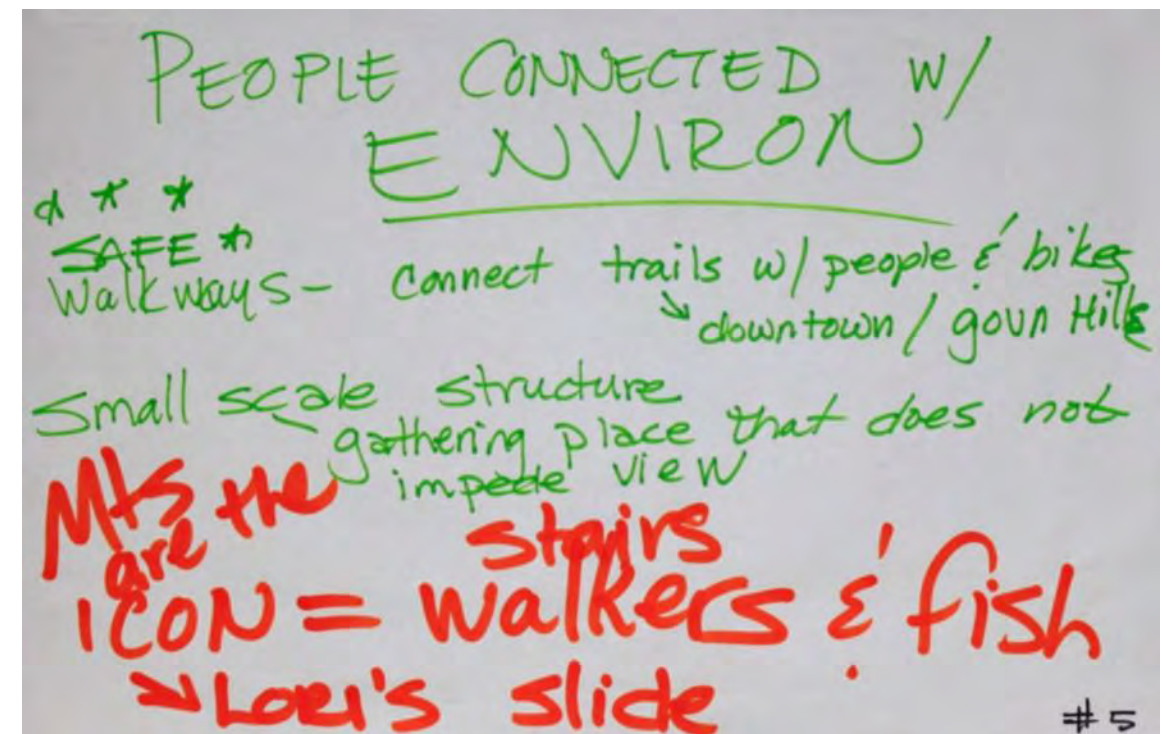 PEOPLE CONNECTED w/
ENVIRON
* * *
SAFE *
Walkways - connect trails w/ people & bikes
↘ downtown / govn Hills
Small scale structure
gathering place that does not
impede view
Mts
are the
ICON = stairs
walkers & fish
↘ Lori's slide
#5